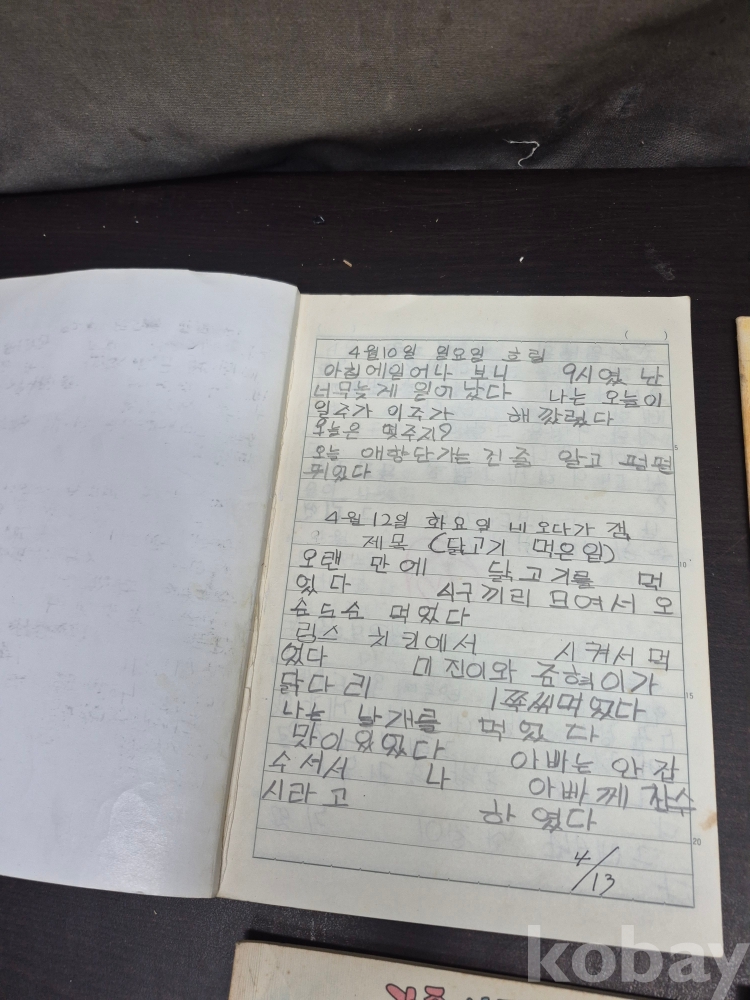 4월10일 일요일 흐림
아침에일어나 보니 9시였 난
너무늦게 일어 났다 나는 오늘이
일주가 이주가 해깠렸다
오늘은 몇주지?
오늘 애향단가는 진줄 알고 펄펄
뛰었다
4월 12일 화요일 비오다가 갬
제목 (닭고기 먹은일)
오랜 만에 닭고기를 먹
었다 식구끼리 모여서 오
손도손 먹었다
림스 치킨에서 시켜서 먹
었다 미진이와 준혁이가
닭다리 1쪽씩먹었다
나는 날개를 먹었다
맛이있었다 아빠는 안잡
수셔서 나 아빠께 잡수
시라고 하였다
4/13
5
10
15
20
kobay